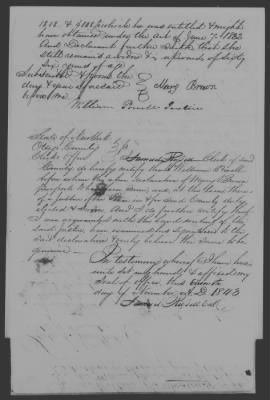 1818 & 1828 (which he was entitled & might
have obtained under the Act of June 7 1832
And Declarant further saith that she
still remains a widow & upwards of sixty
years of age
Subscribed & sworn the
day & year aforesaid Mary Brown
before me
William Powell Justice
State of New York
Otsego County
Clerks office I Samuel Russell Clerk of said
County do hereby certify that William Powell
before whom the declaration of Mary Brown
purports to have been sworn, was at the time thereof
a Justice of the Peace in & for said County duly
elected & sworn. And I do further certify that
I am acquainted with the hand writing of the
said Justice, have examined his signature to the
said declaration & verily believe the same to be
genuine
In testimony whereof I have here-
unto set my hand & affixed my
seal of office this
day of November A.D. 1843
Samuel Russell Clk